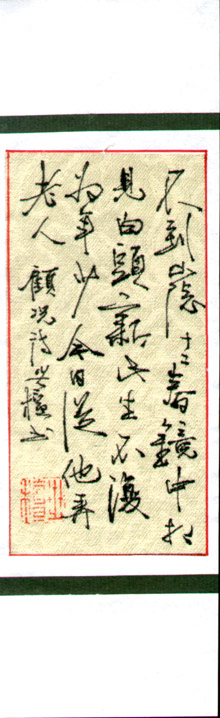 不到山陰十二春鏡中相
見白頭新此生不復
為年少今日從他弄
老人 顧况詩 書